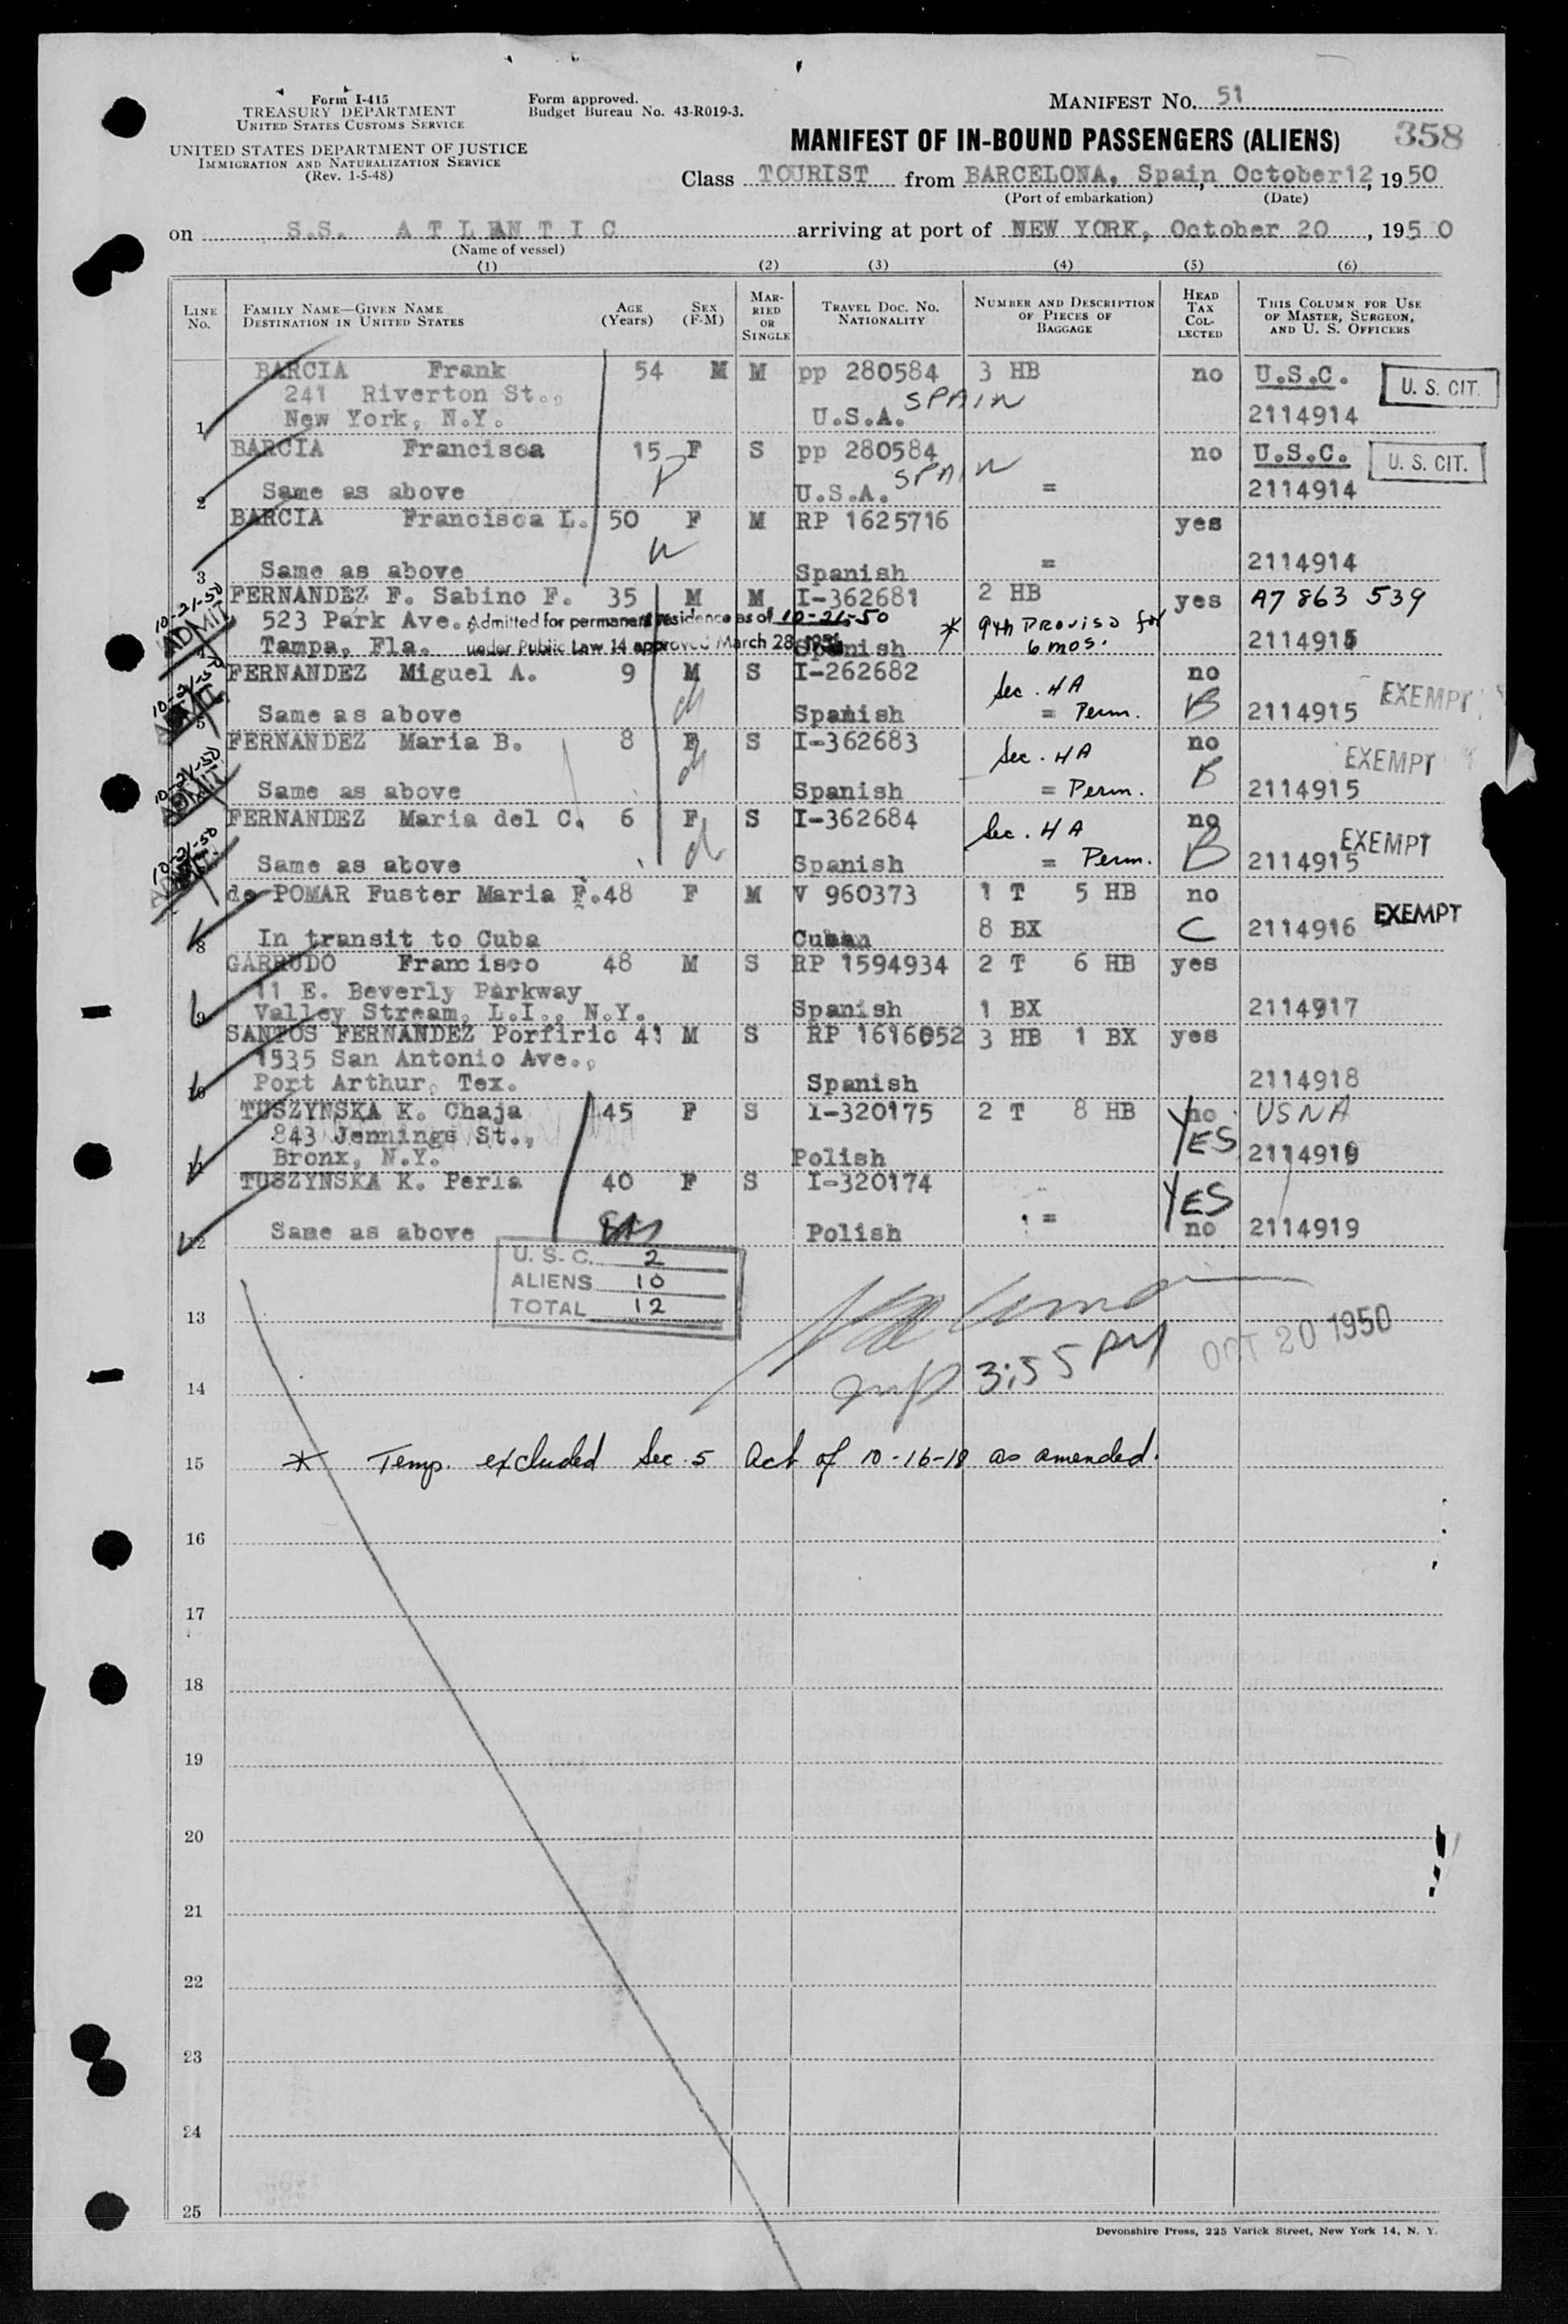 Form I-415
TREASURY DEPARTMENT
UNITED STATES CUSTOMS SERVICE
UNITED STATES DEPARTMENT OF JUSTICE
IMMIGRATION AND NATURALIZATION SERVICE
(Rev. 1-5-48)
Form approved.
Budget Bureau No. 43-R019-3.
MANIFEST NO. 51
MANIFEST OF IN-BOUND PASSENGERS (ALIENS) 358
Class TOURIST from BARCELONA, Spain, October 12, 1950
(Port of embarkation) (Date)
on S.S. ATLANTIC arriving at port of NEW YORK, October 20, 1950
(Name of vessel)
(1) (2) (3) (4) (5) (6)
LINE No. FAMILY NAME—GIVEN NAME DESTINATION IN UNITED STATES AGE (Years) SEX (F-M) MARRIED OR SINGLE TRAVEL DOC. NO. NATIONALITY NUMBER AND DESCRIPTION OF PIECES OF BAGGAGE HEAD TAX COLLECTED THIS COLUMN FOR USE OF MASTER, SURGEON, AND U. S. OFFICERS
BARCIA Frank 54 M M pp 280584 3 HB no U.S.C. U. S. CIT.
241 Riverton St., SPAIN
1 New York, N.Y. U.S.A. 2114914
BARCIA Francisca 15 F S pp 280584 no U.S.C. U. S. CIT.
SPAIN
2 Same as above U.S.A. = 2114914
BARCIA Francisca L. 50 F M RP 1625716 yes
3 Same as above Spanish = 2114914
FERNANDEZ F. Sabino F. 35 M M I-362681 2 HB yes A7 863 539
10-21-50 ADMIT 523 Park Ave., Admitted for permanent residence as of 10-21-50 * 9th Proviso for
Tampa, Fla. under Public Law 14 approved March 28, 1951 Spanish 6 mos. 2114915
FERNANDEZ Miguel A. 9 M S I-262682 Sec. 4A no
10-21-50 ADMIT
5 Same as above Spanish = Perm. B 2114915 EXEMPT
FERNANDEZ Maria B. 8 F S I-362683 Sec. 4A no
10-21-50 ADMIT
Same as above Spanish = Perm. B 2114915 EXEMPT
FERNANDEZ Maria del C. 6 F S I-362684 Sec. 4A no
10-21-50
Same as above Spanish = Perm. B 2114915 EXEMPT
de POMAR Fuster Maria F. 48 F M V 960373 1 T 5 HB no
8 In transit to Cuba Cuban 8 BX C 2114916 EXEMPT
GARRUDO Francisco 48 M S RP 1594934 2 T 6 HB yes
11 E. Beverly Parkway
9 Valley Stream, L.I., N.Y. Spanish 1 BX 2114917
SANTOS FERNANDEZ Porfirio 41 M S RP 1616052 3 HB 1 BX yes
1535 San Antonio Ave.,
10 Port Arthur, Tex. Spanish 2114918
TUSZYNSKA K. Chaja 45 F S I-320175 2 T 8 HB no USNA
843 Jennings St., YES
11 Bronx, N.Y. Polish 2114919
TUSZYNSKA K. Perla 40 F S I-320174 YES
12 Same as above Polish = no 2114919
U. S. C. 2
ALIENS 10
TOTAL 12
13
OCT 20 1950
14 3:55 PM
15 * Temp. excluded Sec. 5 Act of 10-16-18 as amended.
16
17
18
19
20
21
22
23
24
25
Devonshire Press, 225 Varick Street, New York 14, N. Y.